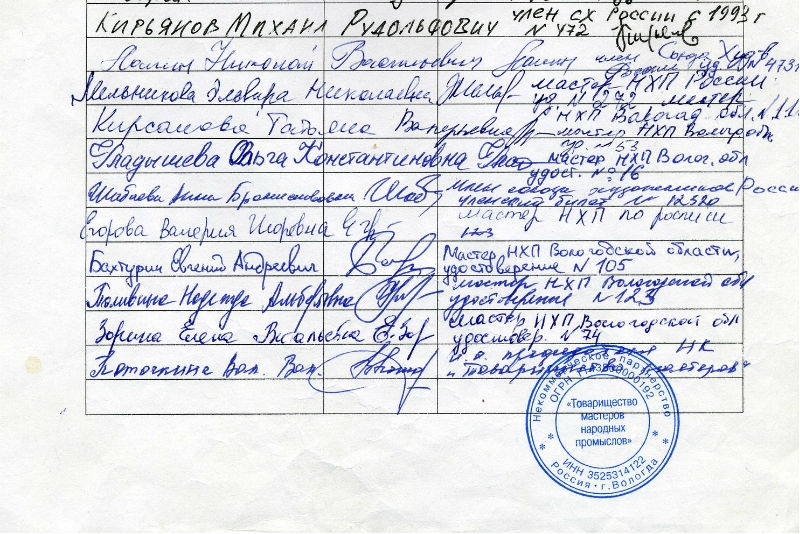 Кирьянов Михаил Рудольфович член СХ России с 1993 г
N 472
Николай
Мельникова Эльвира Николаевна мастер НХП России
уд N 272 мастер
Кирсанова Татьяна Валерьевна мастер НХП Вологодск.
N 53
Гладышева Ольга Константиновна мастер НХП Волог. обл
удост. № 16
Анна Брониславовна Шаб члены союза художников России
членский билет № 12520
Егорова Валерия Игоревна мастер НХП по росписи
123
Бахтурин Евгений Андреевич Мастер НХП Вологодской области,
удостоверение N 105
Надежда Альбертовна мастер НХП Вологодской обл
удостоверение N 123
Зорина Елена Витальевна Е.Зор мастер НХП Вологодской обл
удостовер. N 74
Вал. Вал. и.о. председателя НК
"Товарищество мастеров"
Некоммерческое партнерство
ОГРН
«Товарищество
мастеров
народных
промыслов»
ИНН 3525314122
Россия • г. Вологда